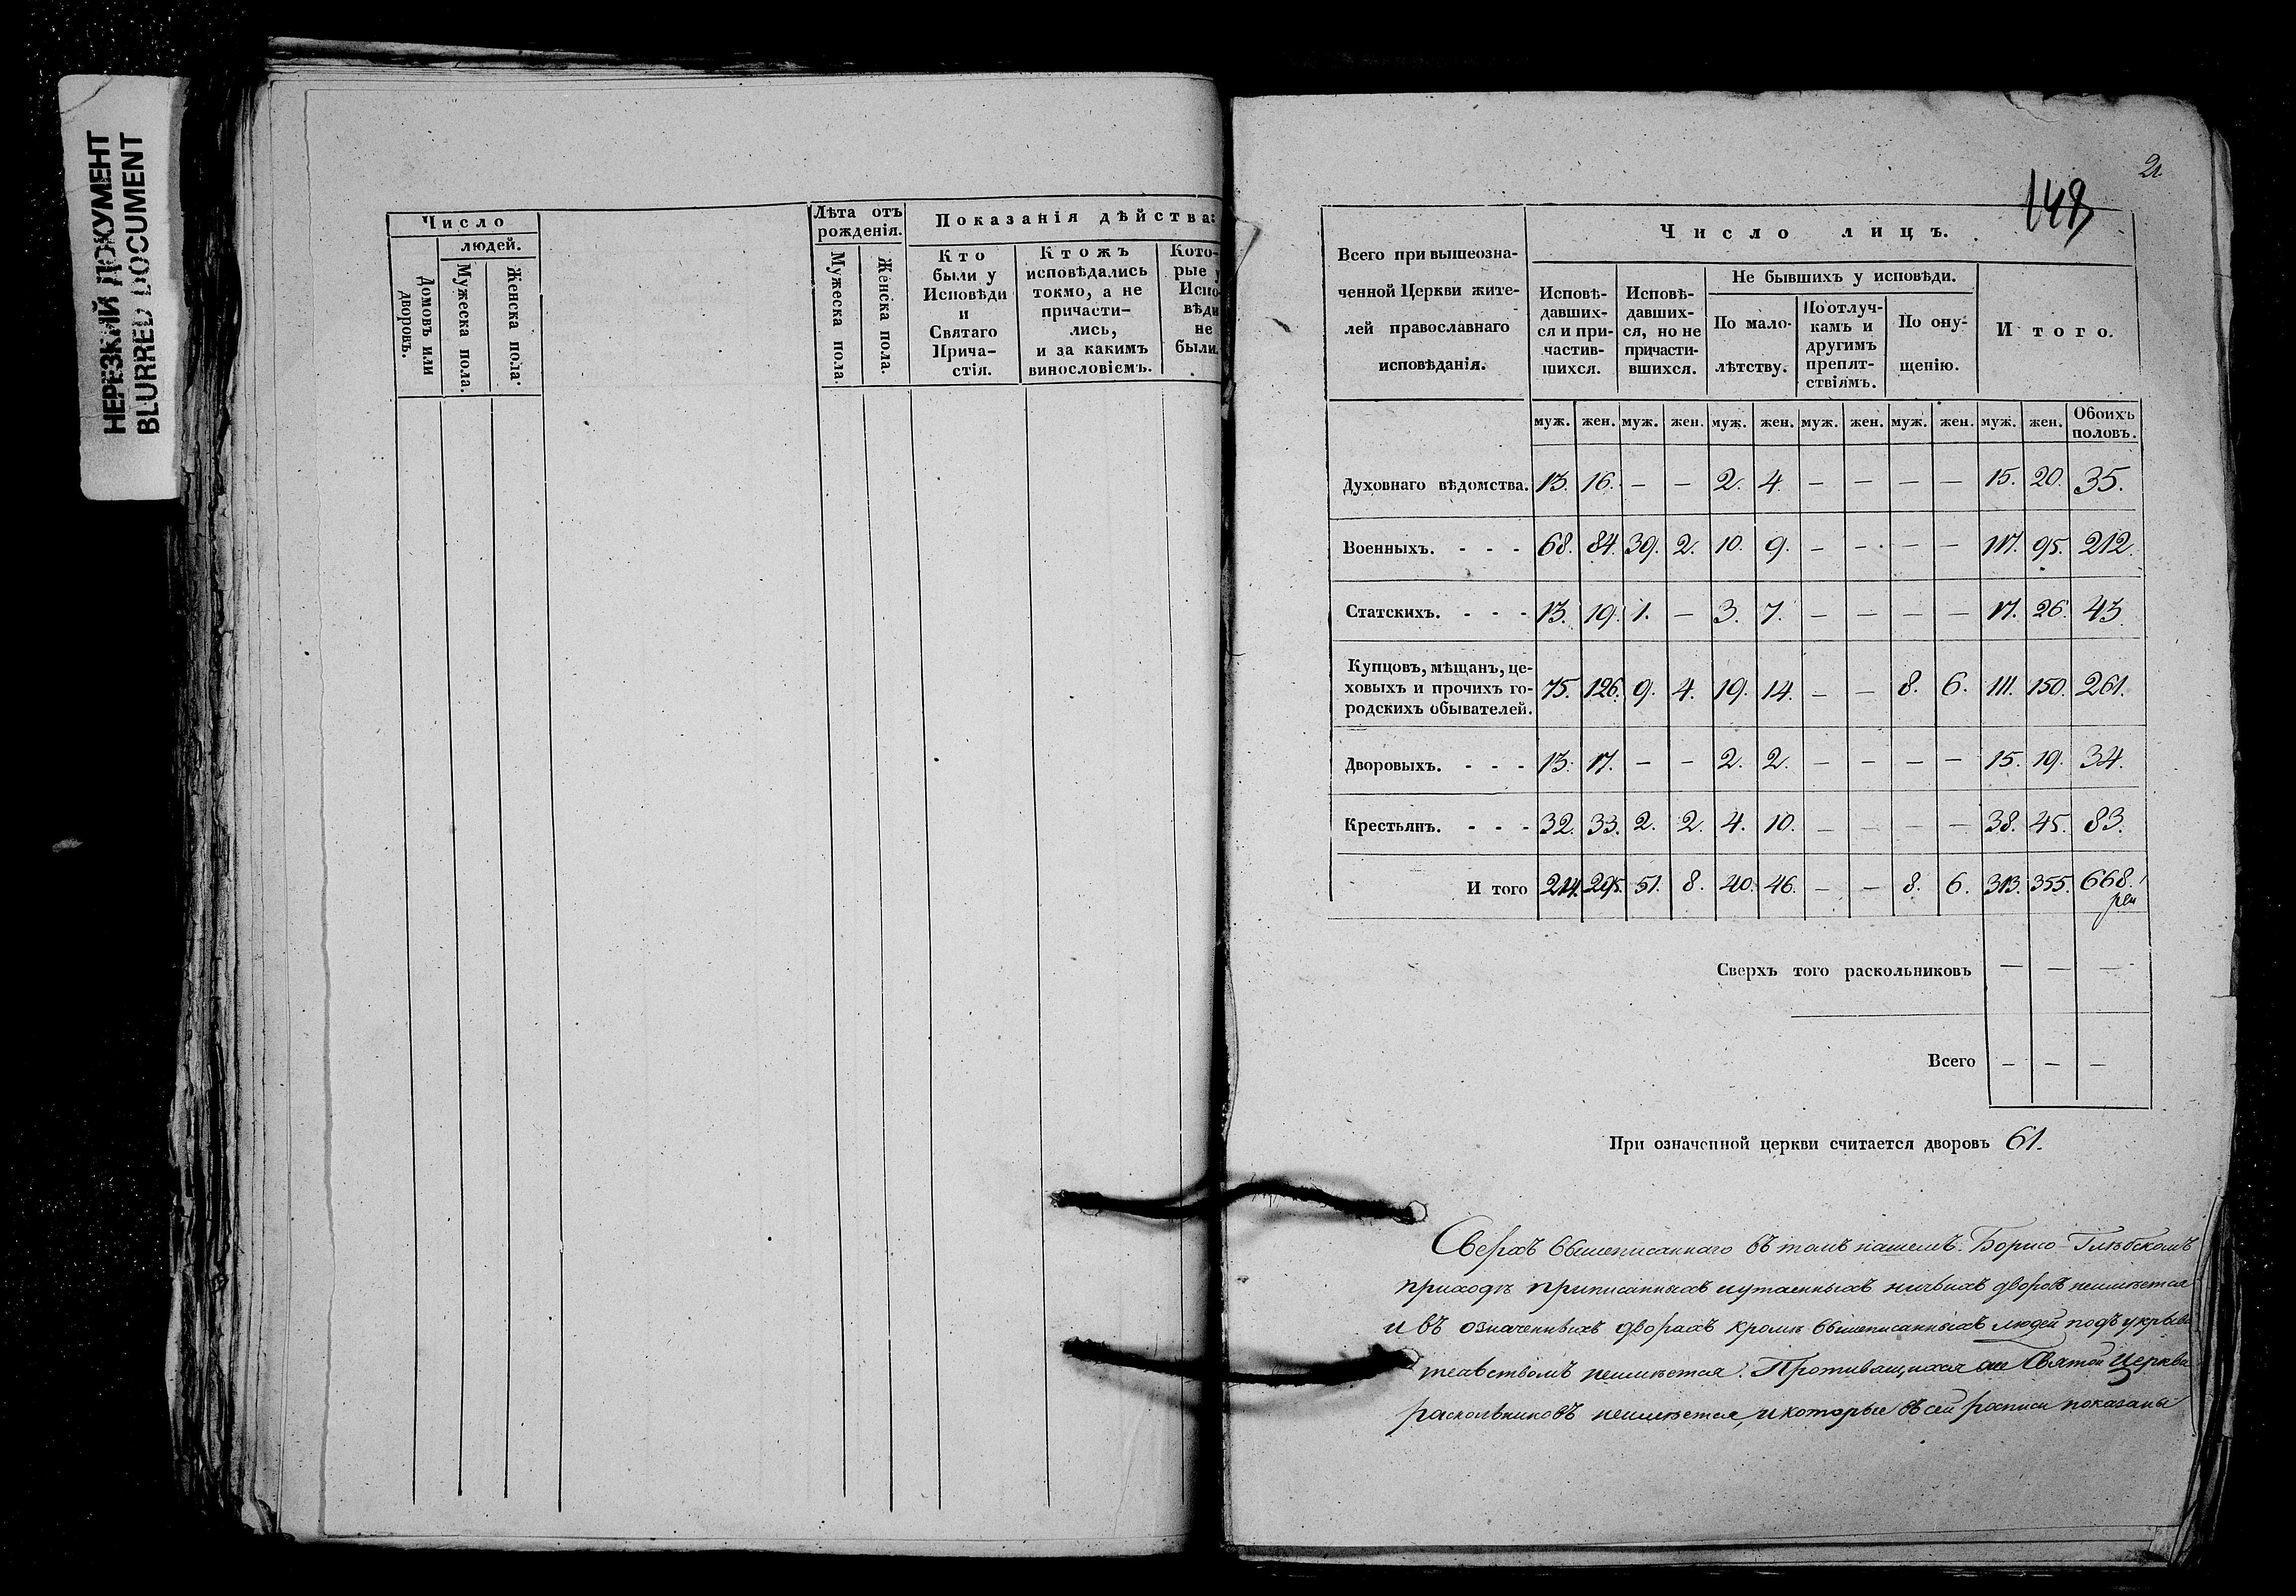 НЕРЕЗКИЙ ДОКУМЕНТ
BLURRED DOCUMENT
Число
людей.
Домовъ или дворовъ.
Мужеска пола.
Женска пола.
Лѣта отъ рожденія.
Мужеска пола.
Женска пола.
Показанія дѣйства:
Кто
были у
Исповѣди
и
Святаго
Прича-
стія.
Ктожъ
исповѣдались
токмо, а не
причасти-
лись,
и за какимъ
винословіемъ.
Кото-
рые у
Испо-
вѣди
не
были.
148
Всего при вышеозна-
ченной Церкви жите-
лей православнаго
исповѣданія.
Число лицъ.
Исповѣ-
давших-
ся и при-
частив-
шихся.
Исповѣ-
давших-
ся, но не
причасти-
вшихся.
Не бывшихъ у исповѣди.
По мало-
лѣтству.
По отлуч-
камъ и
другимъ
препят-
ствіямъ.
По опу-
щенію.
Итого.
муж. жен. муж. жен. муж. жен. муж. жен. муж. жен. муж. жен. Обоихъ половъ.
Духовнаго вѣдомства. 13. 16. — — 2. 4. — — — — 15. 20. 35.
Военныхъ. - - - 68. 84. 39. 2. 10. 9. — — — — 117. 95. 212.
Статскихъ. - - - 13. 19. 1. — 3. 7. — — — — 17. 26. 43
Купцовъ, мѣщанъ, це-
ховыхъ и прочихъ го-
родскихъ обывателей. 75. 126. 9. 4. 19. 14. — — 8. 6. 111. 150. 261.
Дворовыхъ. - - - 13. 17. — — 2. 2. — — — — 15. 19. 34.
Крестьянъ. - - - 32. 33. 2. 2. 4. 10. — — — — 38. 45. 83.
И того 214. 295. 51. 8. 40. 46. — — 8. 6. 313. 355. 668.
Сверхъ того раскольниковъ — — —
Всего — — —
При означенной церкви считается дворовъ 61.
Сверхъ вышеписаннаго въ томъ нашемъ Борисо-Глѣбскомъ
приходѣ приписанныхъ и утаенныхъ ничьихъ дворовъ неимѣется
и въ означенныхъ дворахъ кромѣ вышеписанныхъ людей подъ укрыва
тельствомъ неимѣется. Противящихся Святой Церкви
раскольниковъ неимѣется, и которые въ сей росписи показаны